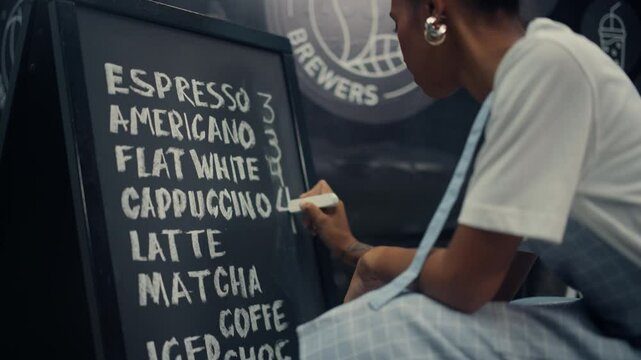 BREWERS
ESPRESSO 3
AMERICANO 3
FLAT WHITE
CAPPUCCINO 4
LATTE
MATCHA
COFFE
ICED CHOC